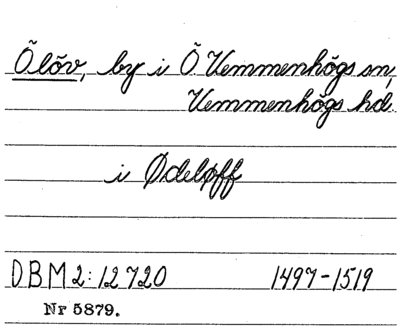 Ölöv, by i Ö Vemmenhögs sn,
Vemmenhögs hd
i Ødeløff
DBM 2:12720 1497-1519
Nr 5879.